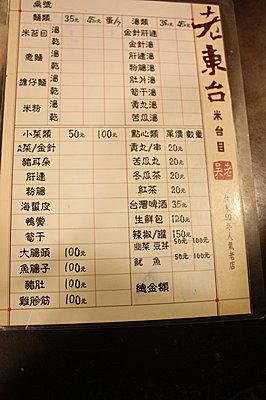 桌號
麵類 35元 45元 蛋/
湯類 35元 45元
米苔目 湯 乾
金針肝湯
金針湯
意麵 湯 乾
肝連湯
粉腸湯
油仔麵 湯 乾
肚片湯
筍干湯
米粉 湯 乾
貢丸湯
苦瓜湯
小菜類 50元 100元
點心類 單價 數量
A菜/金針
貢丸/串 20元
豬耳朵
苦瓜丸 20元
肝連
冬瓜茶 20元
粉腸
紅茶 20元
海蜇皮
台灣啤酒 35元
鴨賞
生鮮包 120元
筍干
辣椒/罐 150元
大腸頭 100元
韭菜 豆芽 50元 100元
魚腸子 100元
魷魚 50元 100元
豬肚 100元
總金額
雞胗筋 100元
老東台
米台目
老吳
50年人氣老店